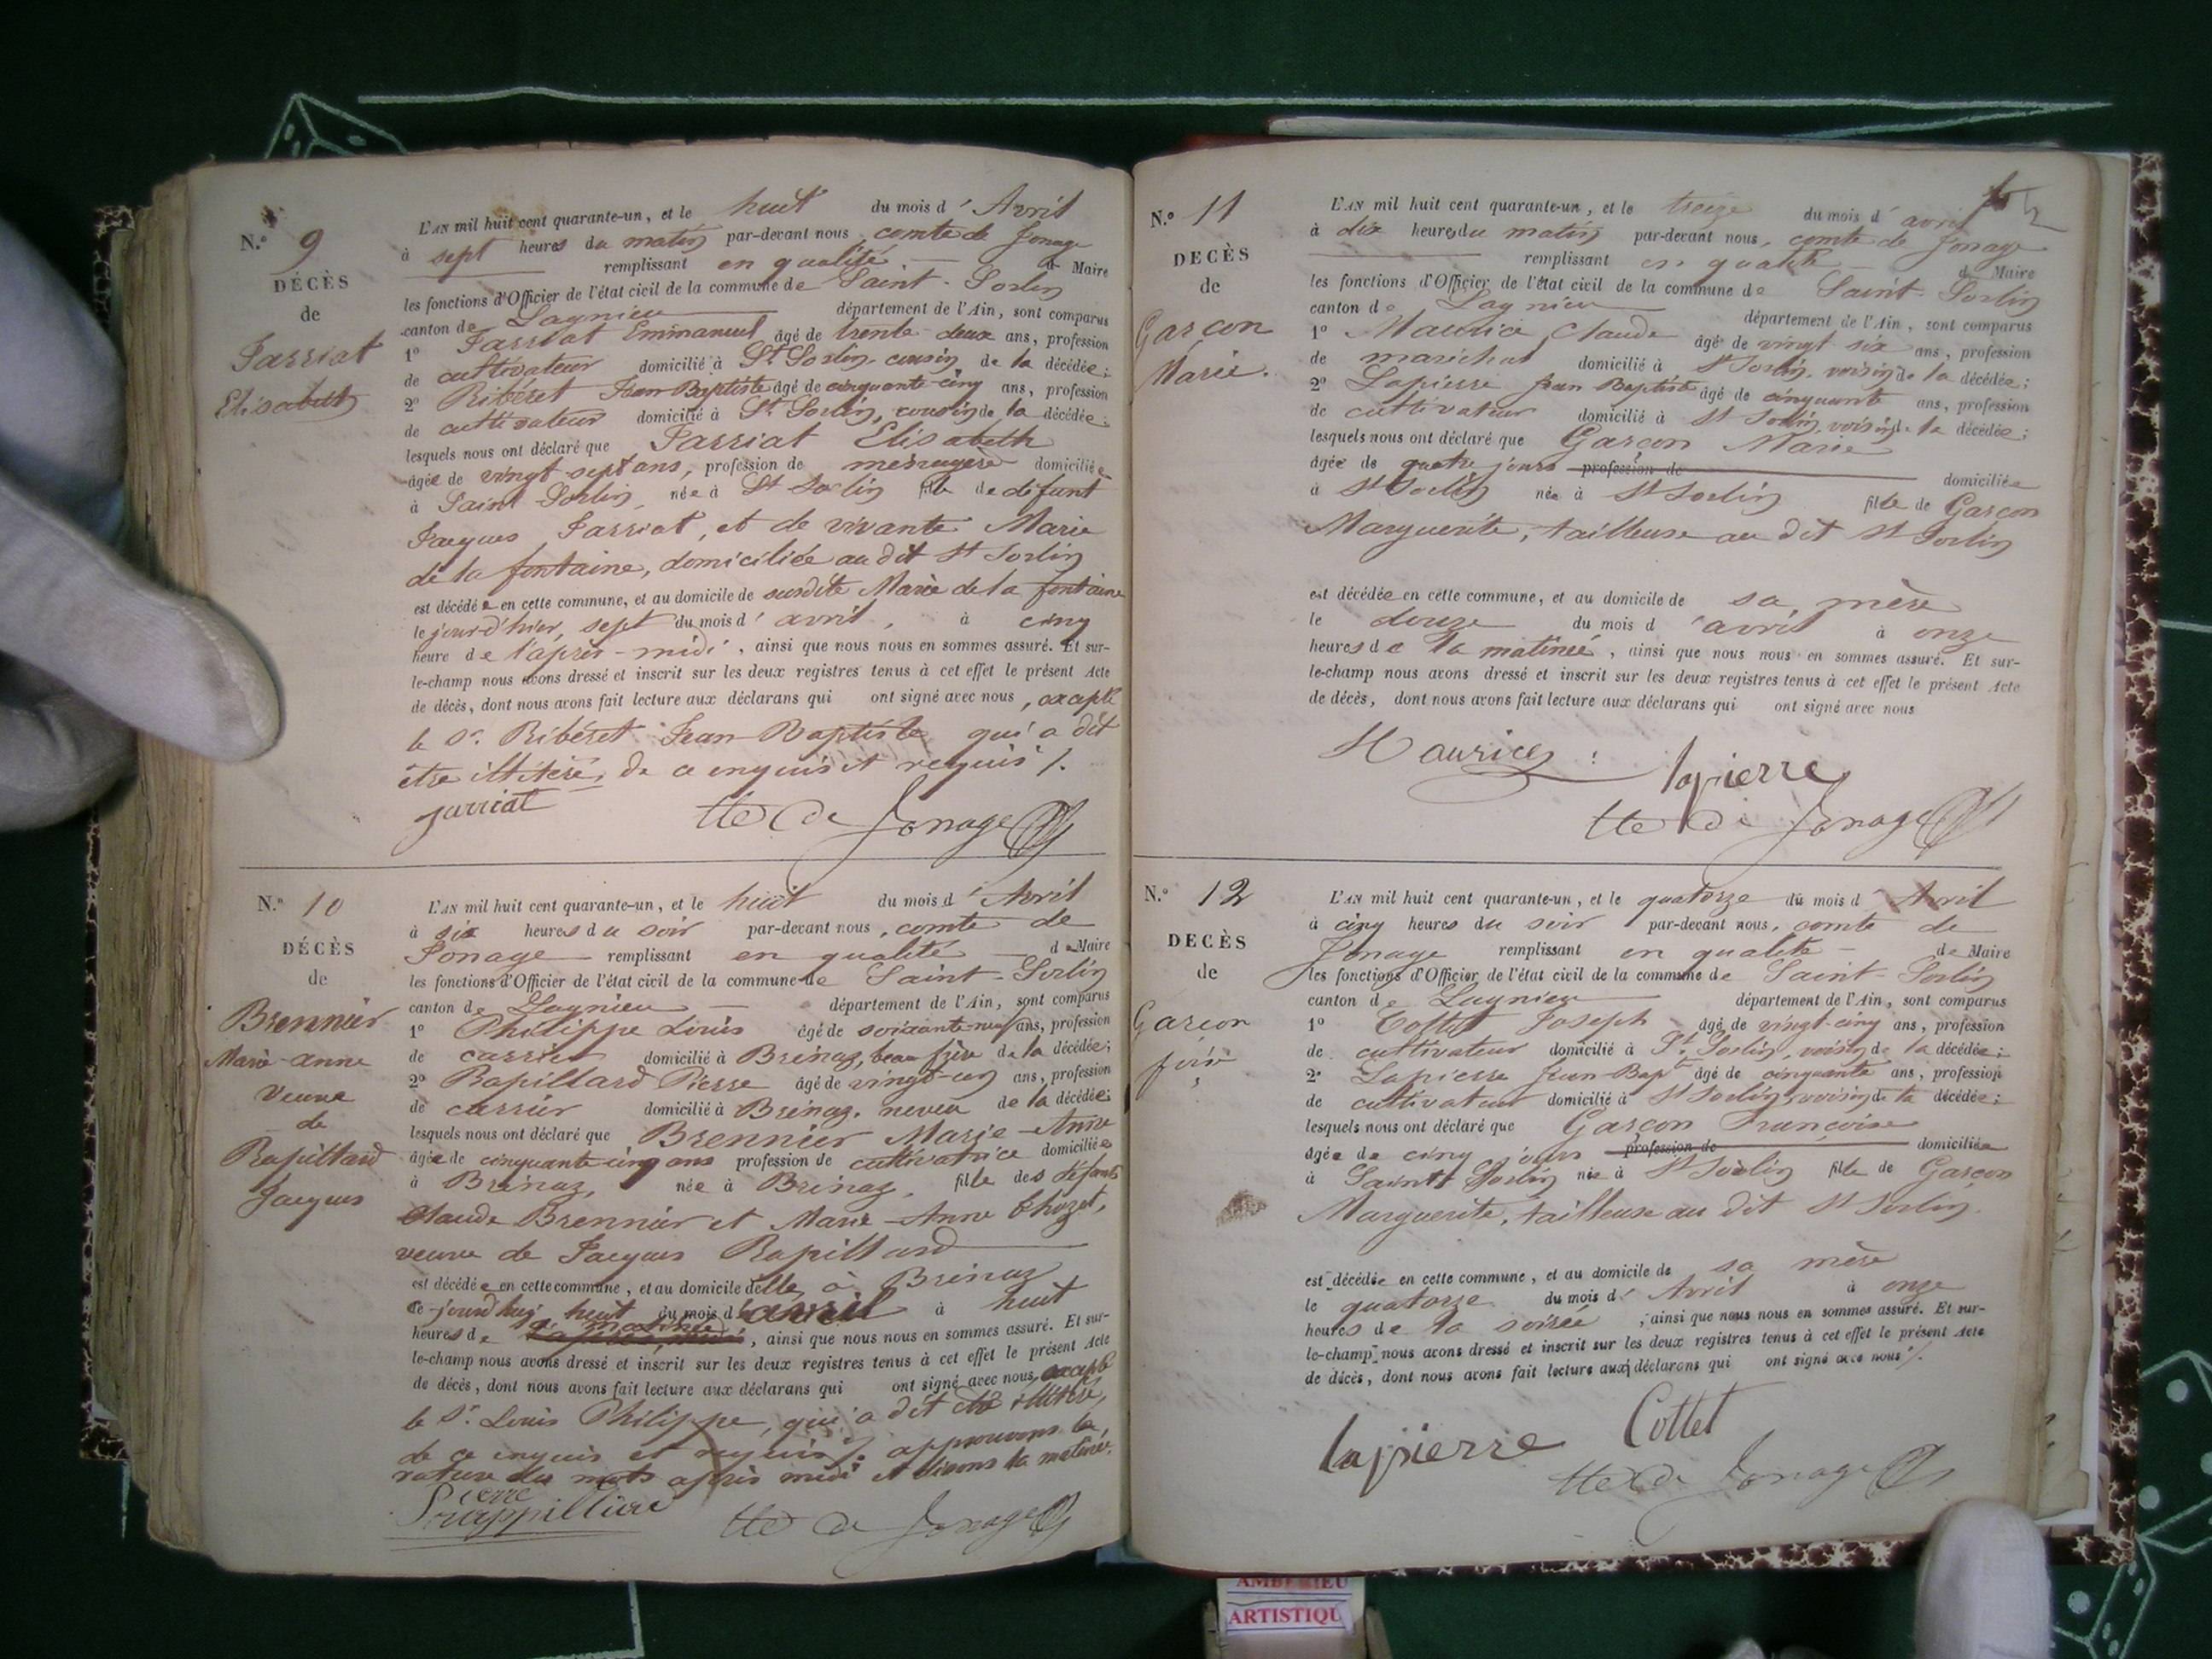 N.o 9
DÉCÈS
de
Jarriat
Elisabeth
L'AN mil huit cent quarante-un, et le huit du mois d'Avril
à sept heures du matin par-devant nous comte de Jonage
remplissant en qualité de Maire
les fonctions d'Officier de l'état civil de la commune de Saint-Sorlin
canton de Lagnieu département de l'Ain, sont comparus
1o Jarriat Emmanuel âgé de trente-deux ans, profession
de cultivateur domicilié à St Sorlin, cousin de la décédée;
2o Ribéret Jean-Baptiste âgé de cinquante-cinq ans, profession
de cultivateur domicilié à St Sorlin, cousin de la décédée;
lesquels nous ont déclaré que Jarriat Elisabeth
âgée de vingt sept ans, profession de ménagère domiciliée
à Saint Sorlin, née à St Sorlin fille de défunt
Jacques Jarriat, et de vivante Marie
de la fontaine, domiciliée au dit St Sorlin
est décédée en cette commune, et au domicile de susdite Marie de la fontaine
le jour d'hier, sept du mois d'avril, à cinq
heure de l'après-midi, ainsi que nous nous en sommes assuré. Et sur-
le-champ nous avons dressé et inscrit sur les deux registres tenus à cet effet le présent Acte
de décès, dont nous avons fait lecture aux déclarans qui ont signé avec nous, excepté
le Sr. Ribéret Jean-Baptiste qui a dit
être illitéré, de ce enquis et requis /.
Jarriat
Cte de Jonage
N.o 10
DÉCÈS
de
Brennier
Marie-anne
veuve
de
Rapillard
Jacques
L'AN mil huit cent quarante-un, et le huit du mois d'Avril
à six heures du soir par-devant nous, comte de
Jonage remplissant en qualité de Maire
les fonctions d'Officier de l'état civil de la commune de Saint-Sorlin
canton de Lagnieu département de l'Ain, sont comparus
1o Philippe Louis âgé de soixante-neuf ans, profession
de carrier domicilié à Brénaz, beau frère de la décédée;
2o Rapillard Pierre âgé de vingt-un ans, profession
de carrier domicilié à Brénaz, neveu de la décédée;
lesquels nous ont déclaré que Brennier Marie-Anne
âgée de cinquante cinq ans profession de cultivatrice domiciliée
à Brénaz, née à Brénaz, fille des défunts
Claude Brennier et Marie-Anne Chozet,
veuve de Jacques Rapillard
est décédée en cette commune, et au domicile d'elle, à Brénaz
ce jourd'huy huit du mois d'avril à huit
heures de matinée, ainsi que nous nous en sommes assuré. Et sur-
le-champ nous avons dressé et inscrit sur les deux registres tenus à cet effet le présent Acte
de décès, dont nous avons fait lecture aux déclarans qui ont signé avec nous, excepté
le Sr. Louis Philippe, qui a dit être illitéré,
de ce enquis et requis /. approuvons la
rature des mots après midi et disons la matinée.
Pierre
Cte de Jonage
N.o 11
DECÈS
de
Garçon
Marie.
L'AN mil huit cent quarante-un, et le treize du mois d'avril
à dix heures du matin par-devant nous, comte de Jonage
remplissant en qualité de Maire
les fonctions d'Officier de l'état civil de la commune de Saint-Sorlin
canton de Lagnieu département de l'Ain, sont comparus
1o Maurice Claude âgé de vingt six ans, profession
de maréchal domicilié à St Sorlin, voisin de la décédée;
2o Lapierre Jean Baptiste âgé de cinquante ans, profession
de cultivateur domicilié à St Sorlin, voisin de la décédée;
lesquels nous ont déclaré que Garçon Marie
âgée de quatre jours profession de domiciliée
à St Sorlin née à St Sorlin fille de Garçon
Marguerite, tailleuse au dit St Sorlin
est décédée en cette commune, et au domicile de sa mère
le douze du mois d'avril à onze
heures de la matinée, ainsi que nous nous en sommes assuré. Et sur-
le-champ nous avons dressé et inscrit sur les deux registres tenus à cet effet le présent Acte
de décès, dont nous avons fait lecture aux déclarans qui ont signé avec nous
Maurice
lapierre
Cte de Jonage
N.o 12
DECÈS
de
Garçon
L'AN mil huit cent quarante-un, et le quatorze du mois d'Avril
à cinq heures du soir par-devant nous, comte de
Jonage remplissant en qualité de Maire
les fonctions d'Officier de l'état civil de la commune de Saint-Sorlin
canton de Lagnieu département de l'Ain, sont comparus
1o Cottet Joseph âgé de vingt-cinq ans, profession
de cultivateur domicilié à St. Sorlin, voisin de la décédée;
2o Lapierre Jean-Bapte âgé de cinquante ans, profession
de cultivateur domicilié à St Sorlin, voisin de la décédée;
lesquels nous ont déclaré que Garçon Françoise
âgée de cinq jours profession de domiciliée
à Saint Sorlin née à St Sorlin fille de Garçon
Marguerite, tailleuse au dit St Sorlin.
est décédée en cette commune, et au domicile de sa mère
le quatorze du mois d'Avril à onze
heures de la soirée, ainsi que nous nous en sommes assuré. Et sur-
le-champ nous avons dressé et inscrit sur les deux registres tenus à cet effet le présent Acte
de décès, dont nous avons fait lecture aux déclarans qui ont signé avec nous /.
lapierre Cottet
Cte de Jonage
AMBERIEU
ARTISTIQU